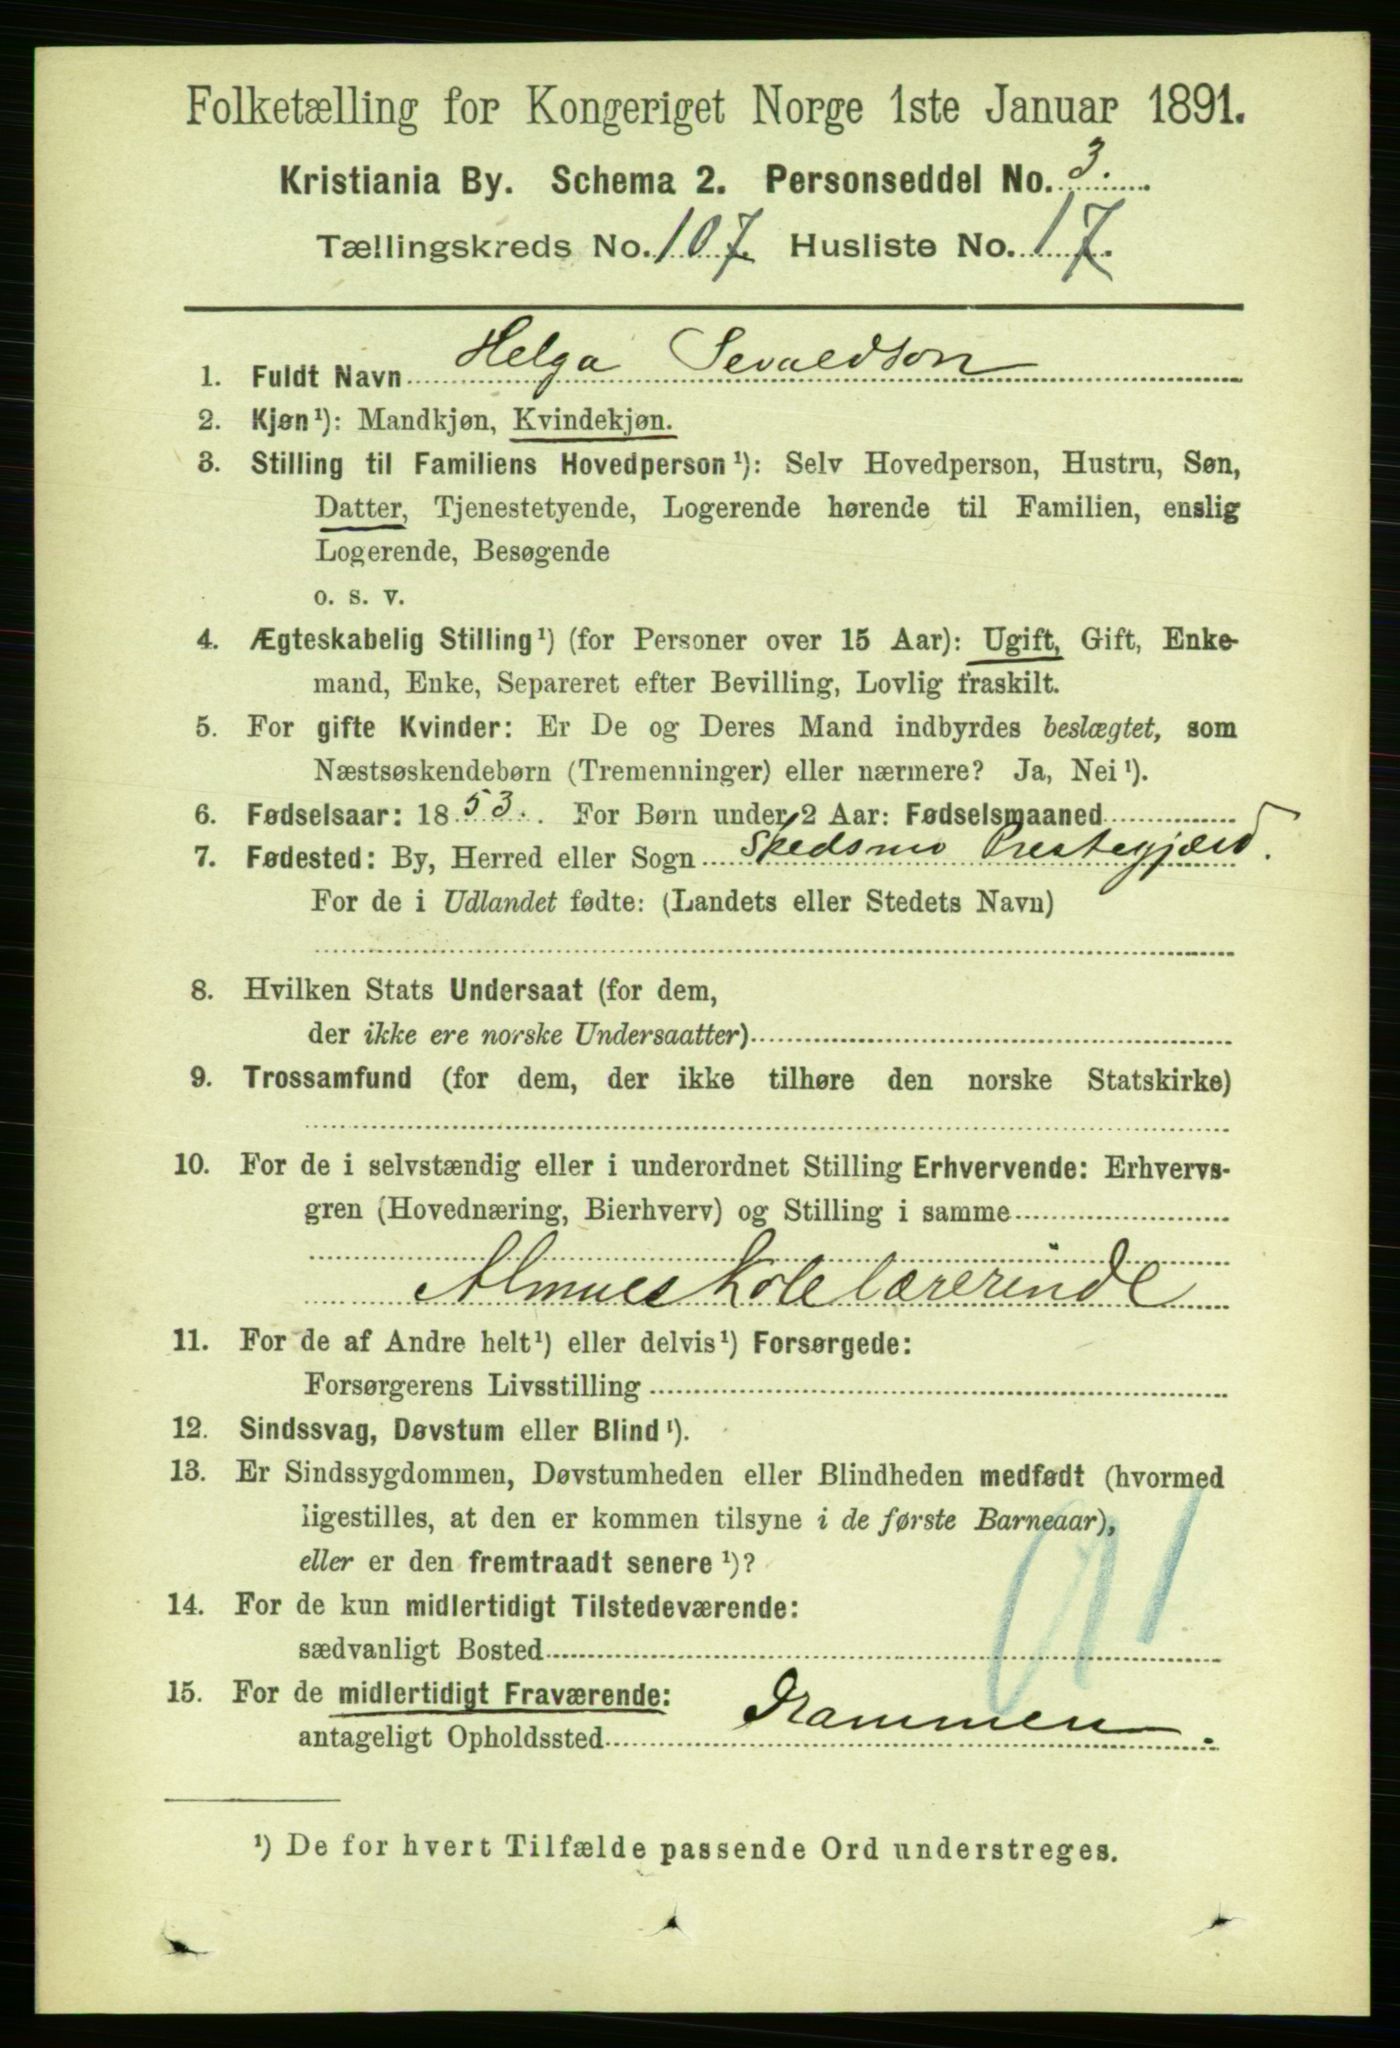 Folketælling for Kongeriget Norge 1ste Januar 1891.
Kristiania By. Schema 2. Personseddel No. 3.
Tællingskreds No. 107. Husliste No. 17.
1. Fuldt Navn Helga Sevaldson
2. Kjøn¹): Mandkjøn, Kvindekjøn.
3. Stilling til Familiens Hovedperson¹): Selv Hovedperson, Hustru, Søn,
Datter, Tjenestetyende, Logerende hørende til Familien, enslig
Logerende, Besøgende
o. s. v.
4. Ægteskabelig Stilling¹) (for Personer over 15 Aar): Ugift, Gift, Enke-
mand, Enke, Separeret efter Bevilling, Lovlig fraskilt.
5. For gifte Kvinder: Er De og Deres Mand indbyrdes beslægtet, som
Næstsøskendebørn (Tremenninger) eller nærmere? Ja, Nei¹).
6. Fødselsaar: 1853. For Børn under 2 Aar: Fødselsmaaned
7. Fødested: By, Herred eller Sogn Skedsmo Prestegjæld.
For de i Udlandet fødte: (Landets eller Stedets Navn)
8. Hvilken Stats Undersaat (for dem,
der ikke ere norske Undersaatter)
9. Trossamfund (for dem, der ikke tilhøre den norske Statskirke)
10. For de i selvstændig eller i underordnet Stilling Erhvervende: Erhvervs-
gren (Hovednæring, Bierhverv) og Stilling i samme
Almueskolelærerinde
11. For de af Andre helt¹) eller delvis¹) Forsørgede:
Forsørgerens Livsstilling
12. Sindssvag, Døvstum eller Blind¹).
13. Er Sindssygdommen, Døvstumheden eller Blindheden medfødt (hvormed
ligestilles, at den er kommen tilsyne i de første Barneaar),
eller er den fremtraadt senere¹)?
14. For de kun midlertidigt Tilstedeværende:
sædvanligt Bosted
15. For de midlertidigt Fraværende:
antageligt Opholdssted Drammen.
¹) De for hvert Tilfælde passende Ord understreges.